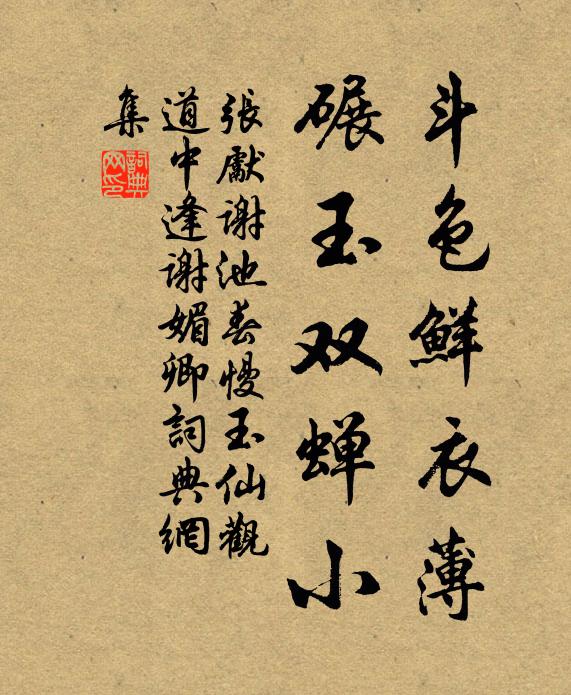 斗色鲜衣薄
碾玉双蝉小
張獻謝池春慢玉仙觀
道中逢謝媚卿詞典網
集
詞典
网印